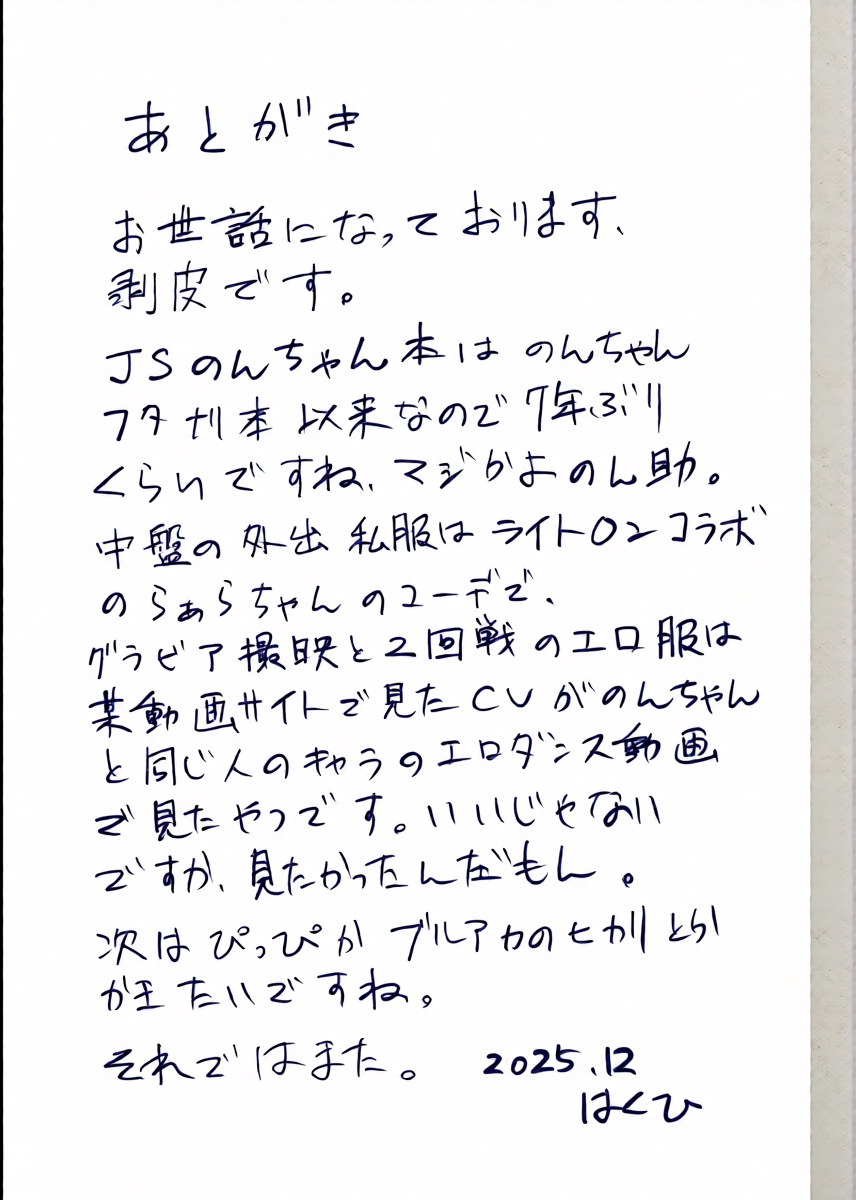 あとがき
お世話になっております、
剥皮です。
JSのんちゃん本は のんちゃん
フタナリ本 以来なので 7年ぶり
くらいですね、マジかよのん助。
中盤の 外出 私服は ライトOンコラボ
のらぁらちゃんのコーデで、
グラビア撮映と2回戦のエロ服は
某動画サイトで見たCVがのんちゃん
と同じ人のキャラのエロダンス動画
で見たやつです。いいじゃない
ですか、見たかったんだもん。
次は ぴっぴか ブルアカのヒカリとか
がきたいですね。
それではまた。 2025.12
はくひ